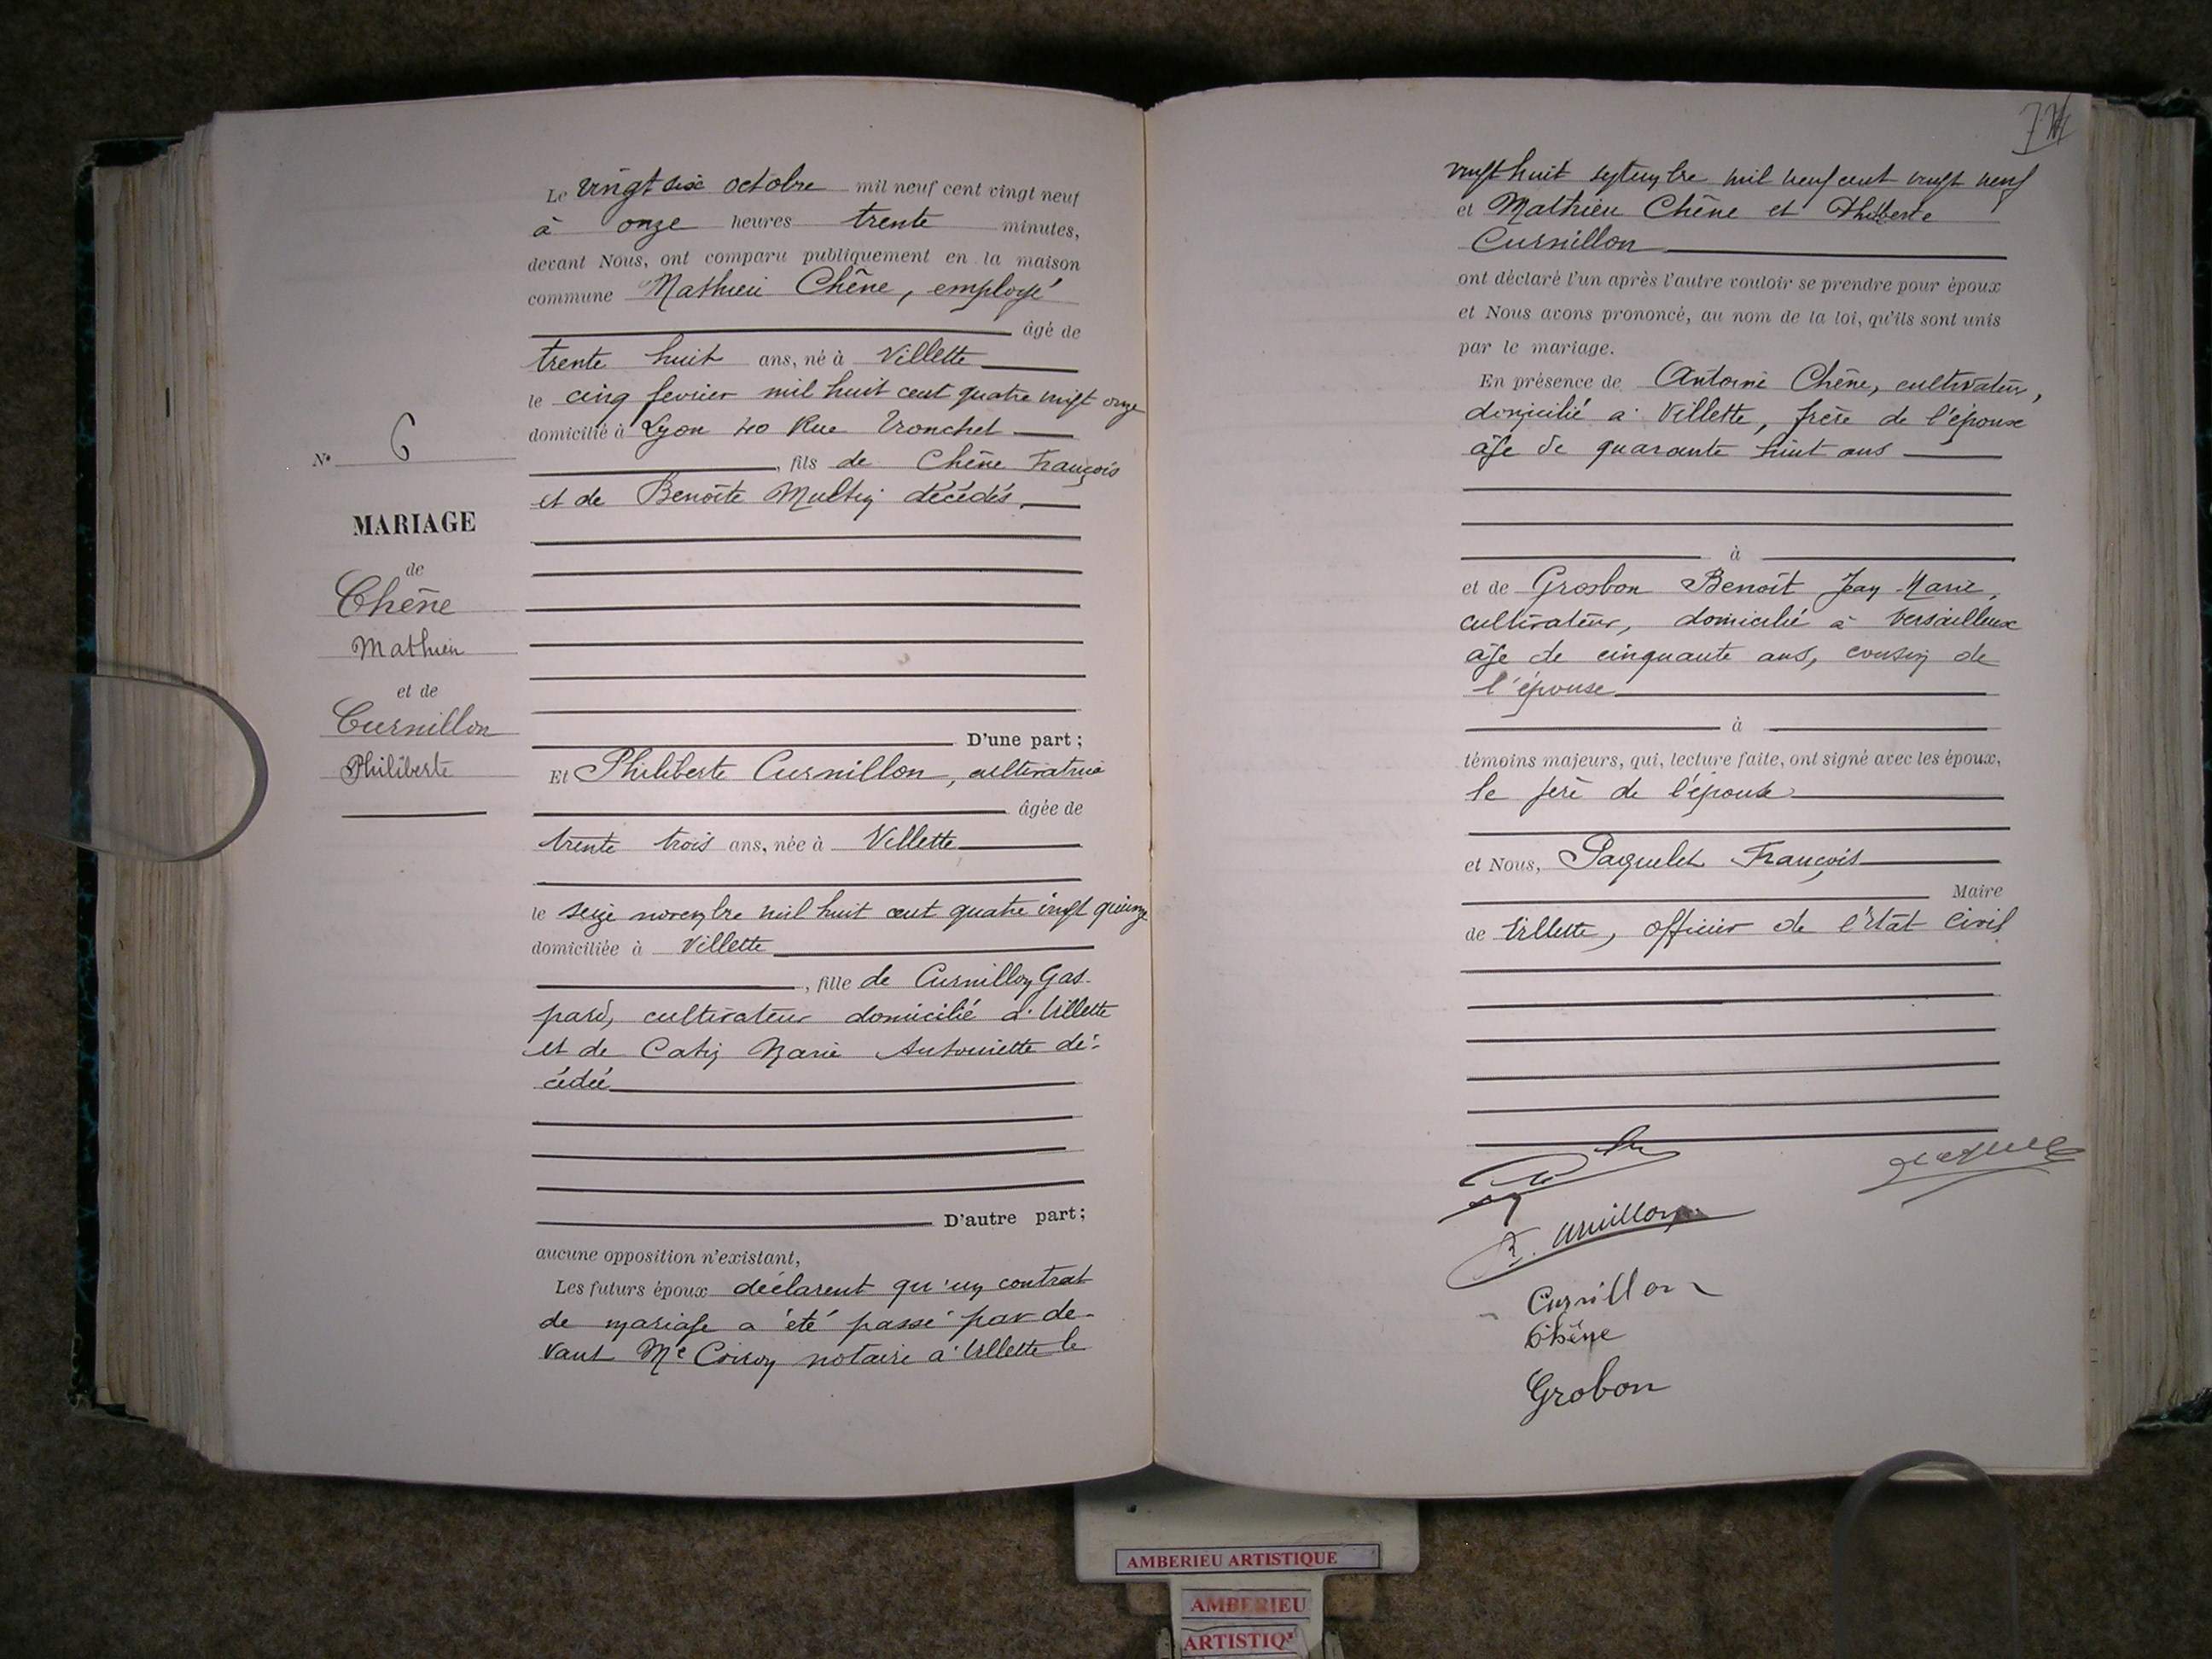 Le vingt six octobre mil neuf cent vingt neuf
à onze heures trente minutes,
devant Nous, ont comparu publiquement en la maison
commune Mathieu Chêne, employé
âgé de
trente huit ans, né à Villette
le cinq fevrier mil huit cent quatre vingt onze
domicilié à Lyon 40 Rue Tronchet
, fils de Chêne François
et de Benoîte Multin décédés.
N° 6
MARIAGE
de
Chêne
Mathieu
et de
Curnillon
Philiberte
D'une part;
Et Philiberte Curnillon, cultivatrice
âgée de
trente trois ans, née à Villette
le seize novembre mil huit cent quatre vingt quinze
domiciliée à Villette
, fille de Curnillon Gas-
pard, cultivateur domicilié à Villette
et de Catin Marie Antoinette dé-
cédée
D'autre part;
aucune opposition n'existant,
Les futurs époux déclarent qu'un contrat
de mariage a été passé par de-
vant Me notaire à Villette le
vingt huit septembre mil neuf cent vingt neuf
et Mathieu Chêne et Philiberte
Curnillon
ont déclaré l'un après l'autre vouloir se prendre pour époux
et Nous avons prononcé, au nom de la loi, qu'ils sont unis
par le mariage.
En présence de Antoine Chêne, cultivateur,
domicilié à Villette, frère de l'époux
âgé de quarante huit ans
à
et de Grosbon Benoît Jean Marie,
cultivateur, domicilié à Versailleux
âgé de cinquante ans, cousin de
l'épouse
à
témoins majeurs, qui, lecture faite, ont signé avec les époux,
le père de l'épouse
et Nous, Paquelet François
Maire
de Villette, officier de l'état civil
P. Curnillon
Curnillon
Chêne
Grobon
AMBERIEU ARTISTIQUE
AMBERIEU
ARTISTIQ